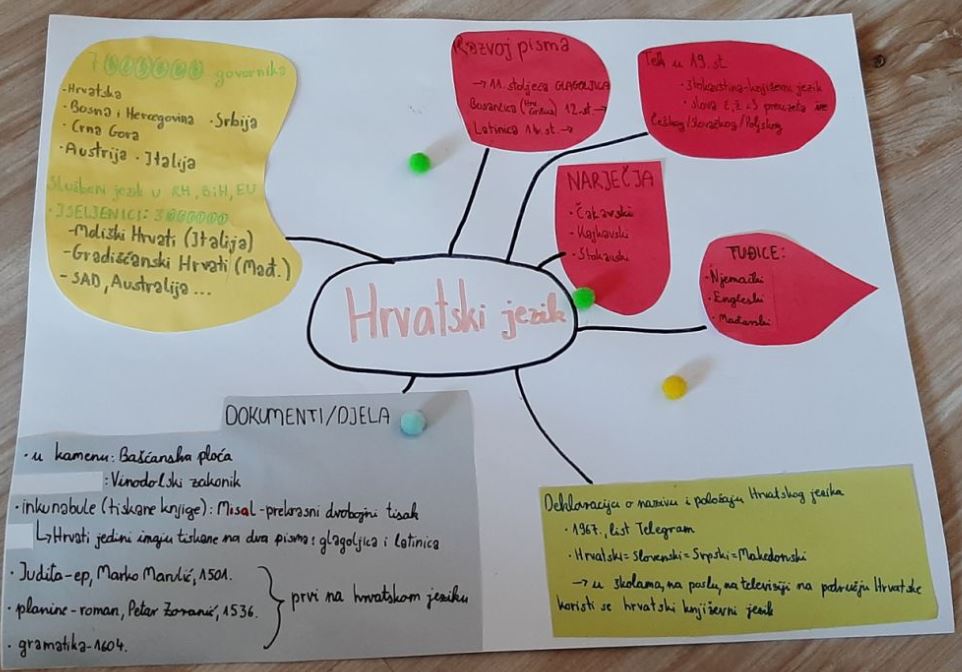 Hrvatski jezik
7 000000 govornika
-Hrvatska
• Bosna i Hercegovina • Srbija
• Crna Gora
• Austrija • Italija
Službeni jezik u RH, BiH, EU
• ISELJENICI: 3000000
-Moliški Hrvati (Italija)
-Gradišćanski Hrvati (Mađ.)
- SAD, Australija ...
Razvoj pisma
→ 11. stoljeća GLAGOLJICA
Bosančica 12. st. →
Latinica 14. st. →
Tek u 19. st.
• štokavština-književni jezik
• slova č, ž, š preuzeta iz
Češkog/Slovačkog/Poljskog
NARJEČJA
• Čakavski
• Kajkavski
• Štokavski
TUĐICE:
• Njemački
• Engleski
• Mađarski
DOKUMENTI/DJELA
• u kamenu: Bašćanska ploča
: Vinodolski zakonik
• inkunabule (tiskane knjige): Misal-prekrasni dvobojni tisak
↳ Hrvati jedini imaju tiskane na dva pisma: glagoljica i latinica
• Judita-ep, Marko Marulić, 1501.
• planine-roman, Petar Zoranić, 1536.
prvi na hrvatskom jeziku
• gramatika-1604.
Deklaracija o nazivu i položaju Hrvatskog jezika
• 1967. list Telegram
• Hrvatski=Slovenski=Srpski=Makedonski
→ u školama, na poslu, na televiziji na području Hrvatske
koristi se hrvatski književni jezik